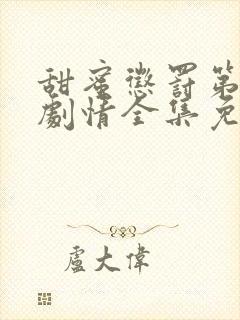 甜蜜懲罰第
劇情全集免
盧大偉